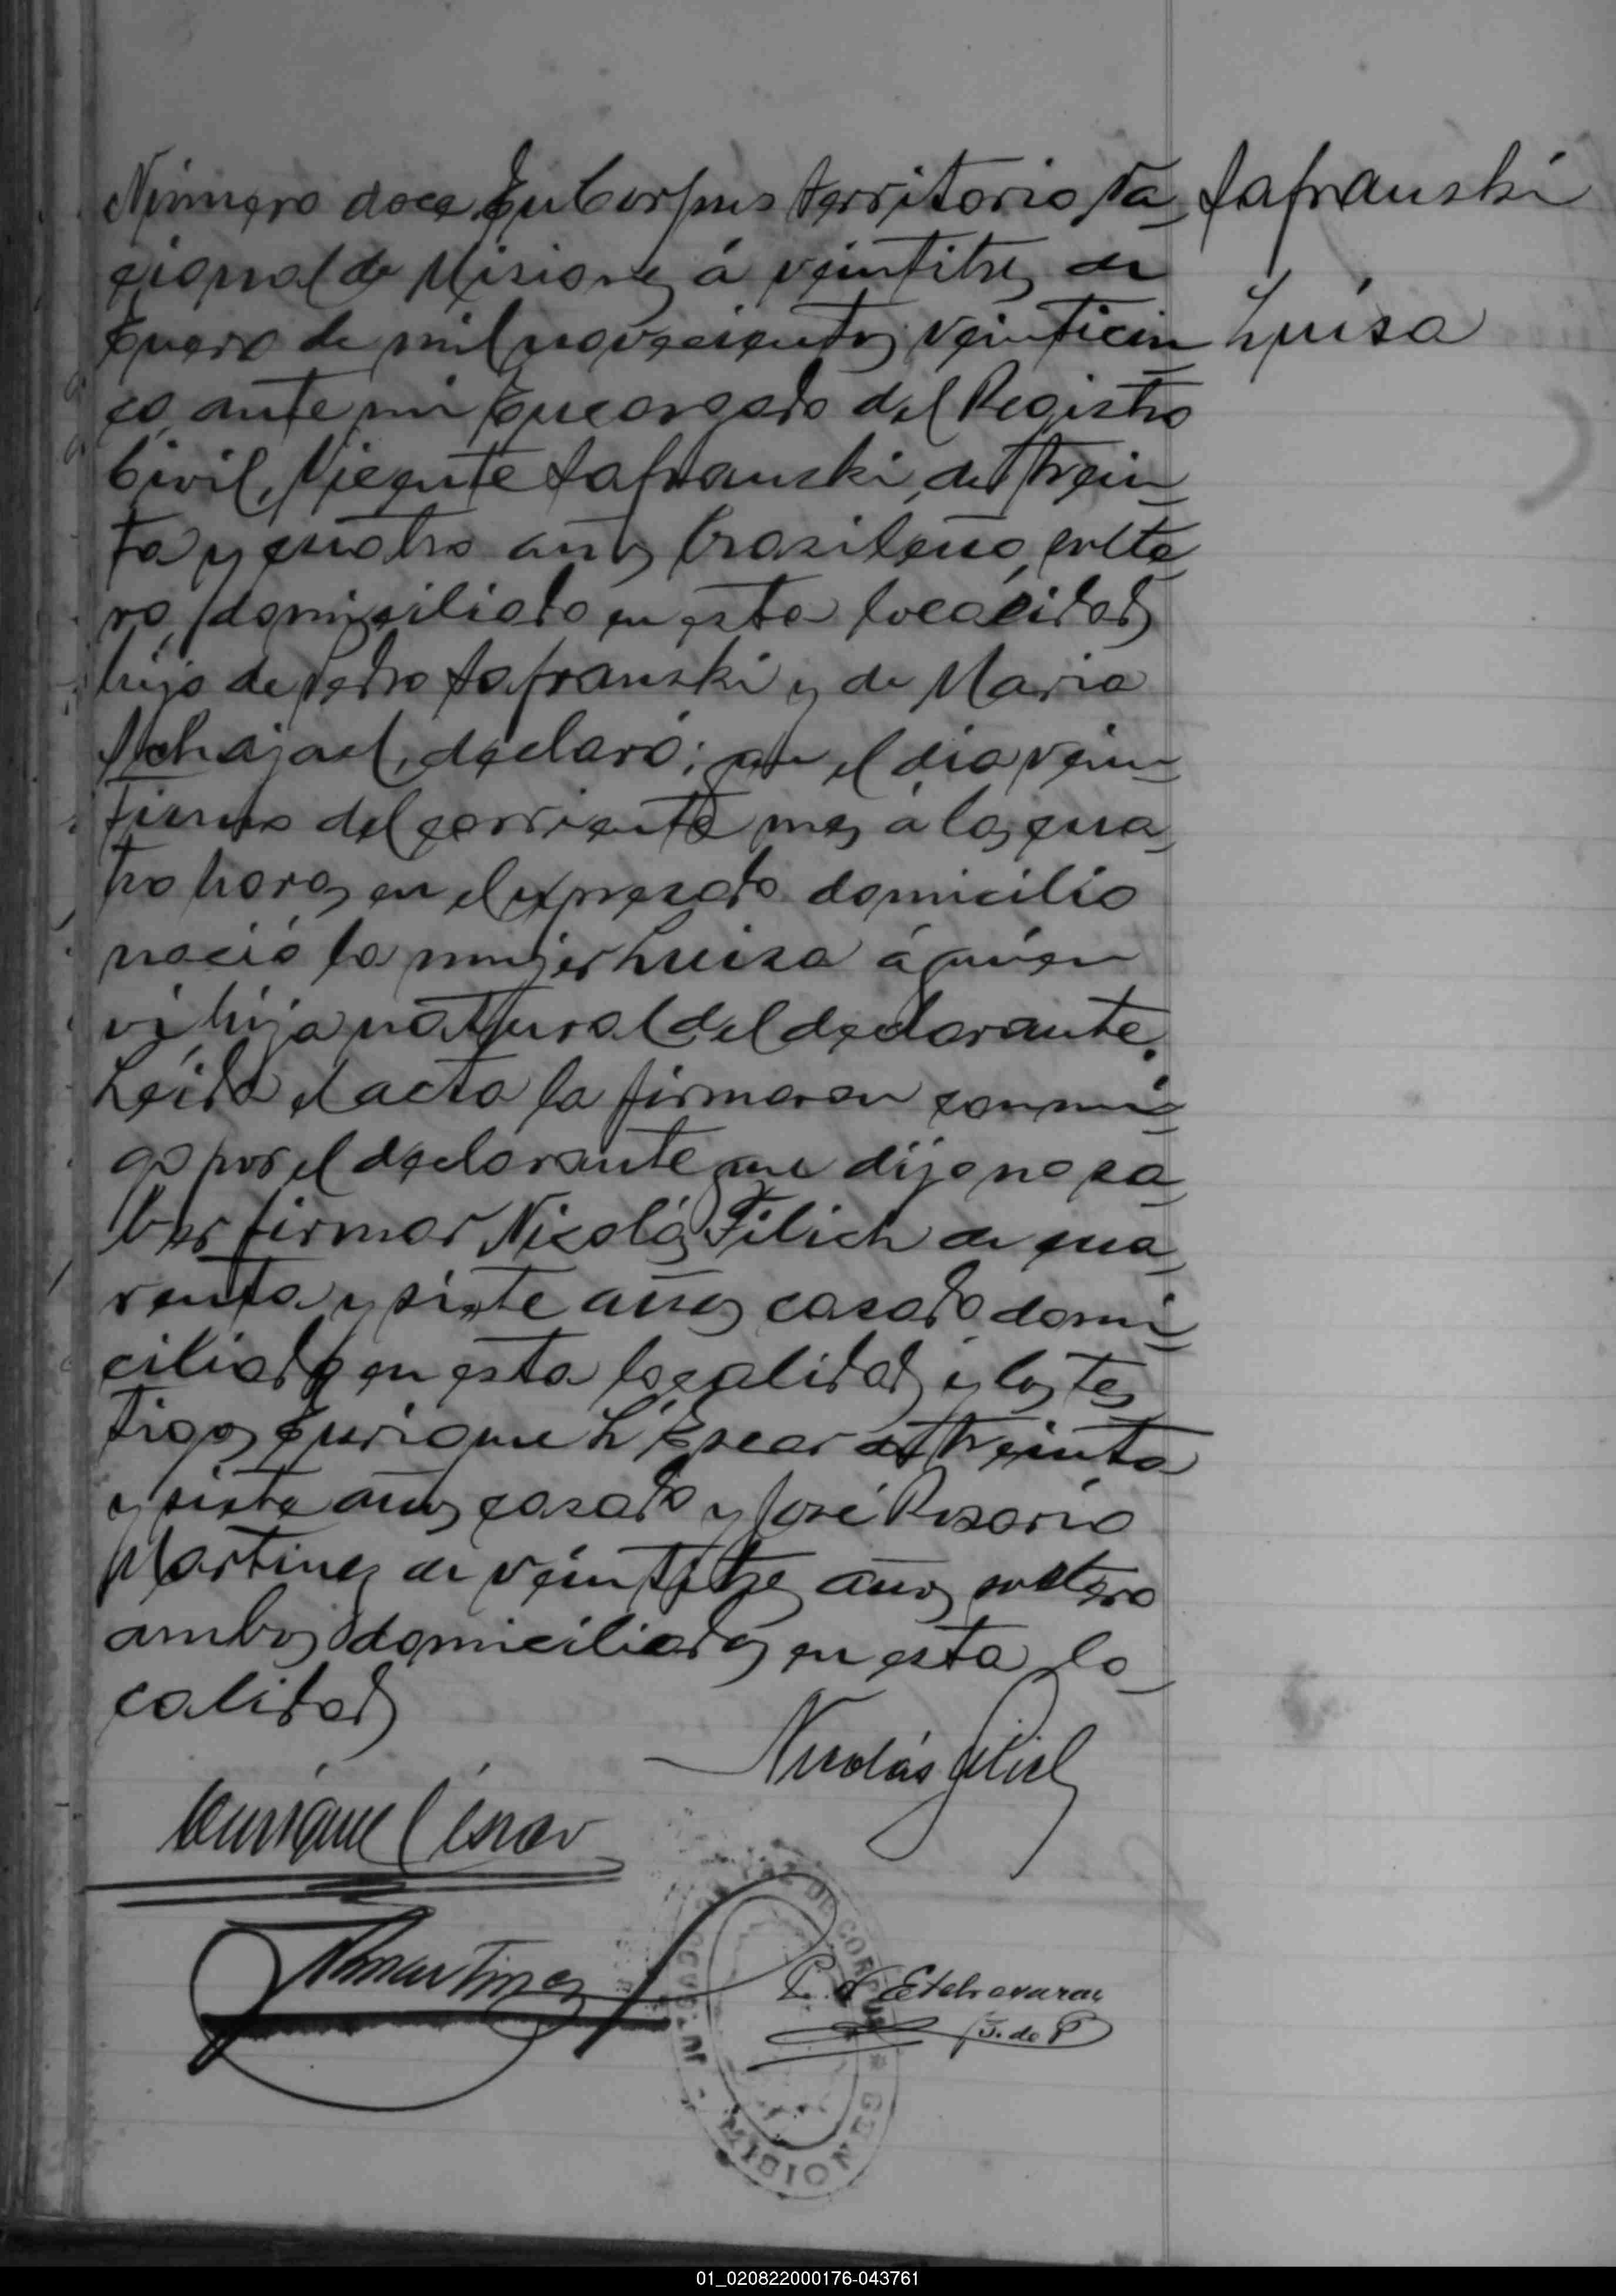 Número doce. En Corpus territorio Na_
cional de Misiones á veintitres de
Enero de mil novecientos veinticin_
co, ante mi Encargado del Registro
Civil, Vicente Safranski, de trein_
ta y cuatro años brasileño, solte_
ro, domiciliado en esta localidad
hijo de Pedro Safranski y de Maria
Schajael, declaró: que el dia vein_
tiuno del corriente mes á las cua_
tro horas en el expresado domicilio
nació la mujer Luisa á quien
vi hija natural del declarante.
Leida el acta la firmaron conmi_
go por el declarante que dijo no sa_
ber firmar Nicolás Filich de cua_
renta y siete años casado domi_
ciliado en esta localidad y los tes_
tigos Enrique L'Escar de treinta
y siete años casado y José Rosario
Martinez de veintitres años soltero
ambos domiciliados en esta lo_
calidad
Safranski
Luisa
Nicolás Filich
Enrique Léscar
Martinez
P. Etchevarae
J. de P
DE CORPUS
MISIONES
01_020822000176-043761